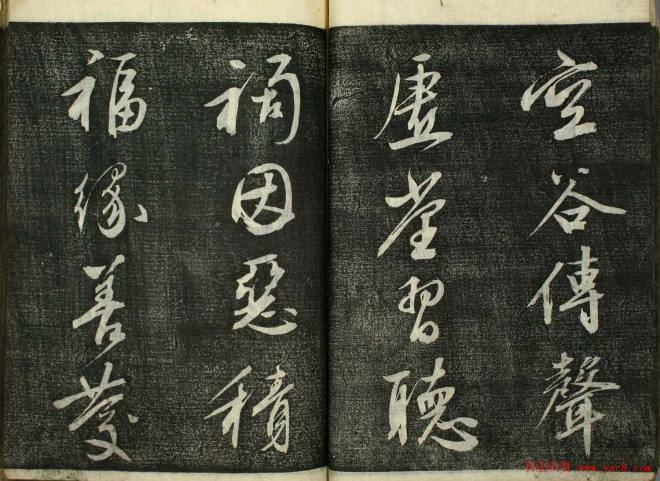 空谷傳聲
虛堂習聽
禍因惡積
福緣善慶
www.yac8.com